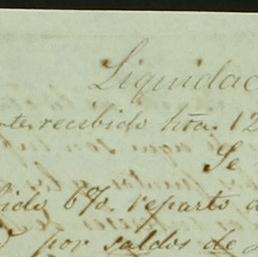 Liquidac
recibido hta. 12
Se
ido 6%. reparto d
por saldos de